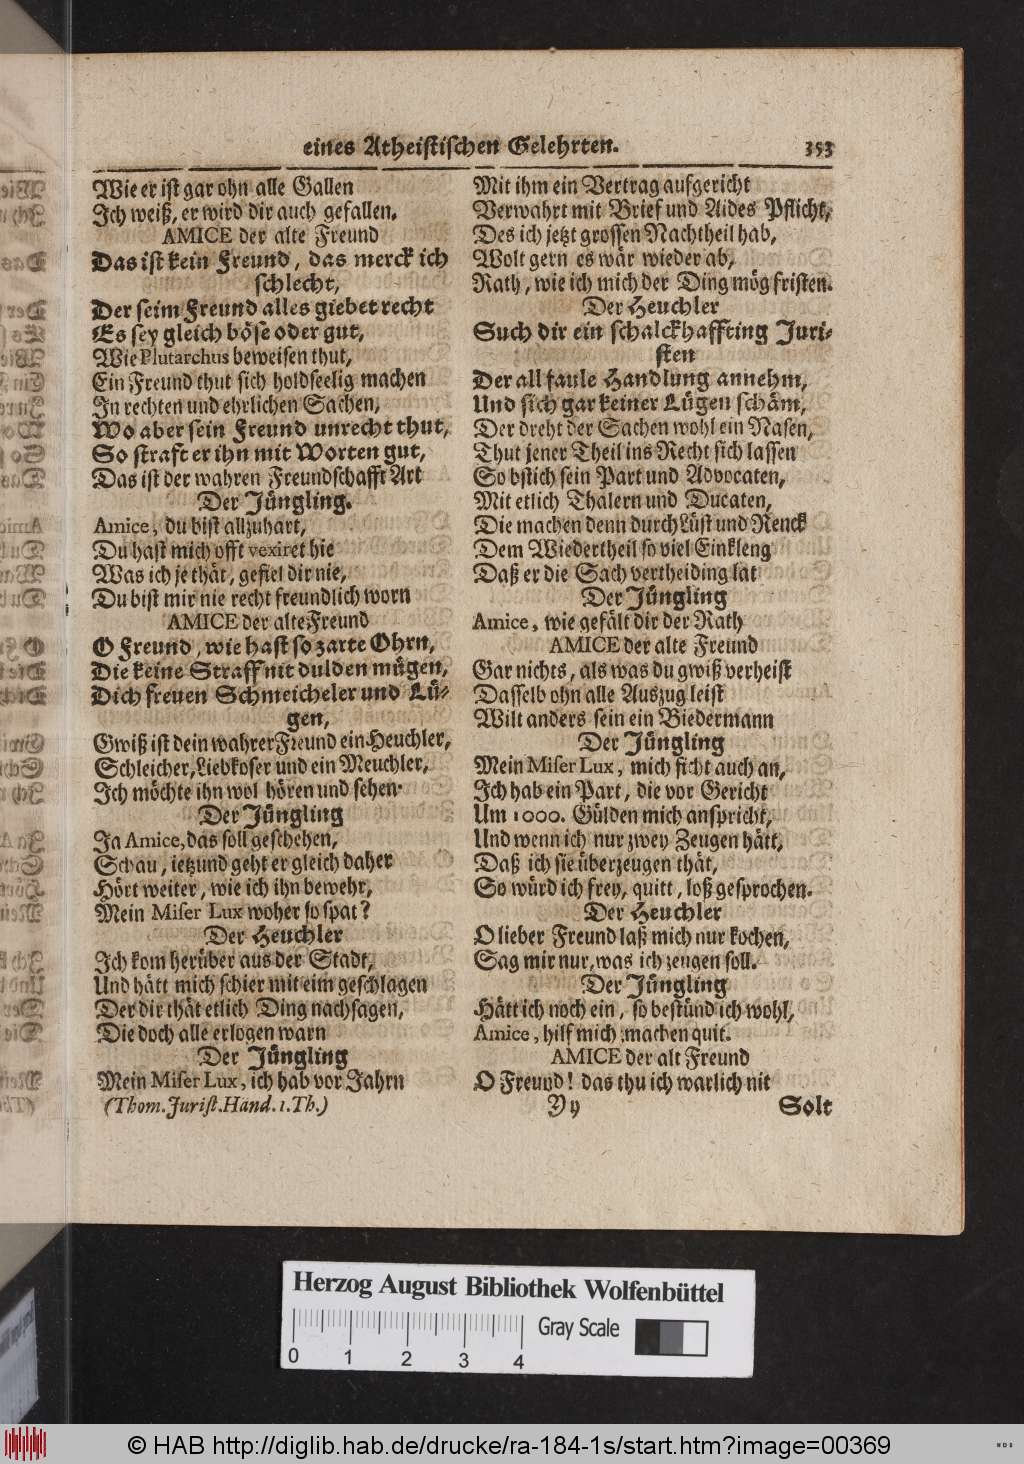 eines Atheistischen Gelehrten. 353
Wie er ist gar ohn alle Gallen
Ich weiß, er wird dir auch gefallen.
AMICE der alte Freund
Das ist kein Freund, das merck ich
schlecht,
Der seim Freund alles giebet recht
Es sey gleich böse oder gut,
Wie Plutarchus beweisen thut,
Ein Freund thut sich holdseelig machen
In rechten und ehrlichen Sachen,
Wo aber sein Freund unrecht thut,
So straft er ihn mit Worten gut,
Das ist der wahren Freundschafft Art
Der Jüngling.
Amice, du bist allzuhart,
Du hast mich offt vexiret hie
Was ich je thät, gefiel dir nie,
Du bist mir nie recht freundlich worn
AMICE der alte Freund
O Freund, wie hast so zarte Ohrn,
Die keine Straff nit dulden mügen,
Dich freuen Schmeicheler und Lü-
gen,
Gwiß ist dein wahrer Freund ein Heuchler,
Schleicher, Liebkoser und ein Meuchler,
Ich möchte ihn wol hören und sehen.
Der Jüngling
Ja Amice, das soll geschehen,
Schau, ietzund geht er gleich daher
Hört weiter, wie ich ihn bewehr,
Mein Miser Lux woher so spat?
Der Heuchler
Ich kom herüber aus der Stadt,
Und hätt mich schier mit eim geschlagen
Der dir thät etlich Ding nachsagen,
Die doch alle erlogen warn
Der Jüngling
Mein Miser Lux, ich hab vor Jahrn
(Thom. Jurist. Hand. 1. Th.)
Mit ihm ein Vertrag aufgericht
Verwahrt mit Brief und Aides Pflicht,
Des ich jetzt grossen Nachtheil hab,
Wolt gern es wär wieder ab,
Rath, wie ich mich der Ding mög fristen.
Der Heuchler
Such dir ein schalckhaffting Juri-
sten
Der all faule Handlung annehm,
Und sich gar keiner Lügen schäm,
Der dreht der Sachen wohl ein Nasen,
Thut jener Theil ins Recht sich lassen
So bstich sein Part und Advocaten,
Mit etlich Thalern und Ducaten,
Die machen denn durch Lüst und Renck
Dem Wiedertheil so viel Einkleng
Daß er die Sach vertheiding lat
Der Jüngling
Amice, wie gefält dir der Rath
AMICE der alte Freund
Gar nichts, als was du gwiß verheist
Dasselb ohn alle Auszug leist
Wilt anders sein ein Biedermann
Der Jüngling
Mein Miser Lux, mich ficht auch an,
Ich hab ein Part, die vor Gericht
Um 1000. Gülden mich anspricht,
Und wenn ich nur zwey Zeugen hätt,
Daß ich sie überzeugen thät,
So würd ich frey, quitt, loß gesprochen.
Der Heuchler
O lieber Freund laß mich nur kochen,
Sag mir nur, was ich zeugen soll.
Der Jüngling
Hätt ich noch ein, so bestünd ich wohl,
Amice, hilf mich machen quit.
AMICE der alt Freund
O Freund! das thu ich warlich nit
Yy Solt
Herzog August Bibliothek Wolfenbüttel
0 1 2 3 4 Gray Scale
© HAB http://diglib.hab.de/drucke/ra-184-1s/start.htm?image=00369